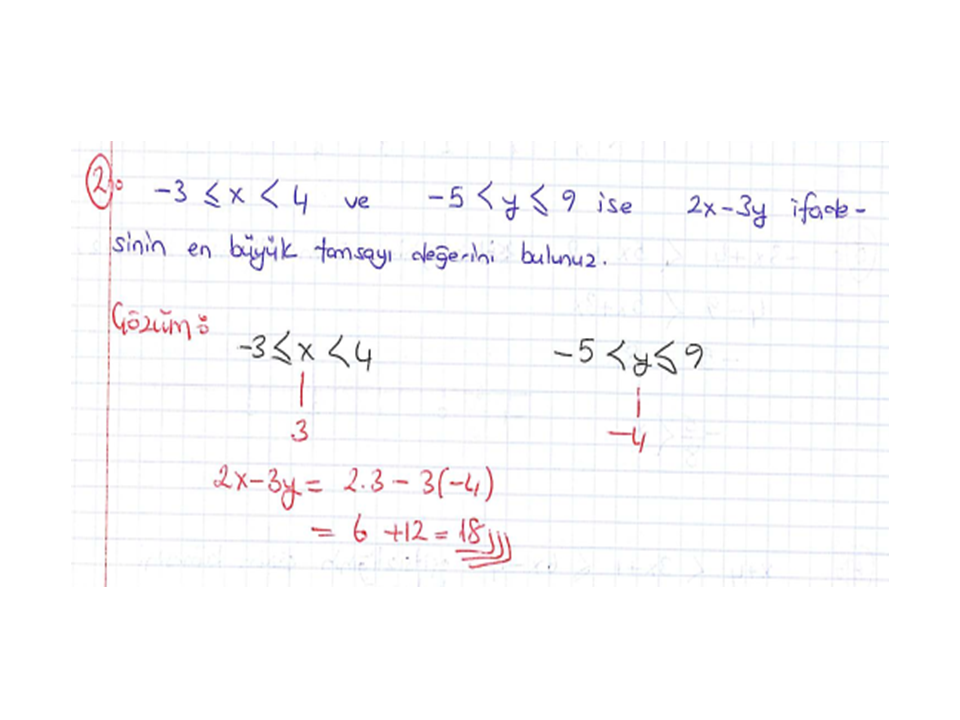 2) -3 ≤ x < 4 ve -5 < y ≤ 9 ise 2x-3y ifade-
sinin en büyük tamsayı değerini bulunuz.
Çözüm:
-3 ≤ x < 4 -5 < y ≤ 9
3 -4
2x-3y = 2.3 - 3(-4)
= 6 +12 = 18